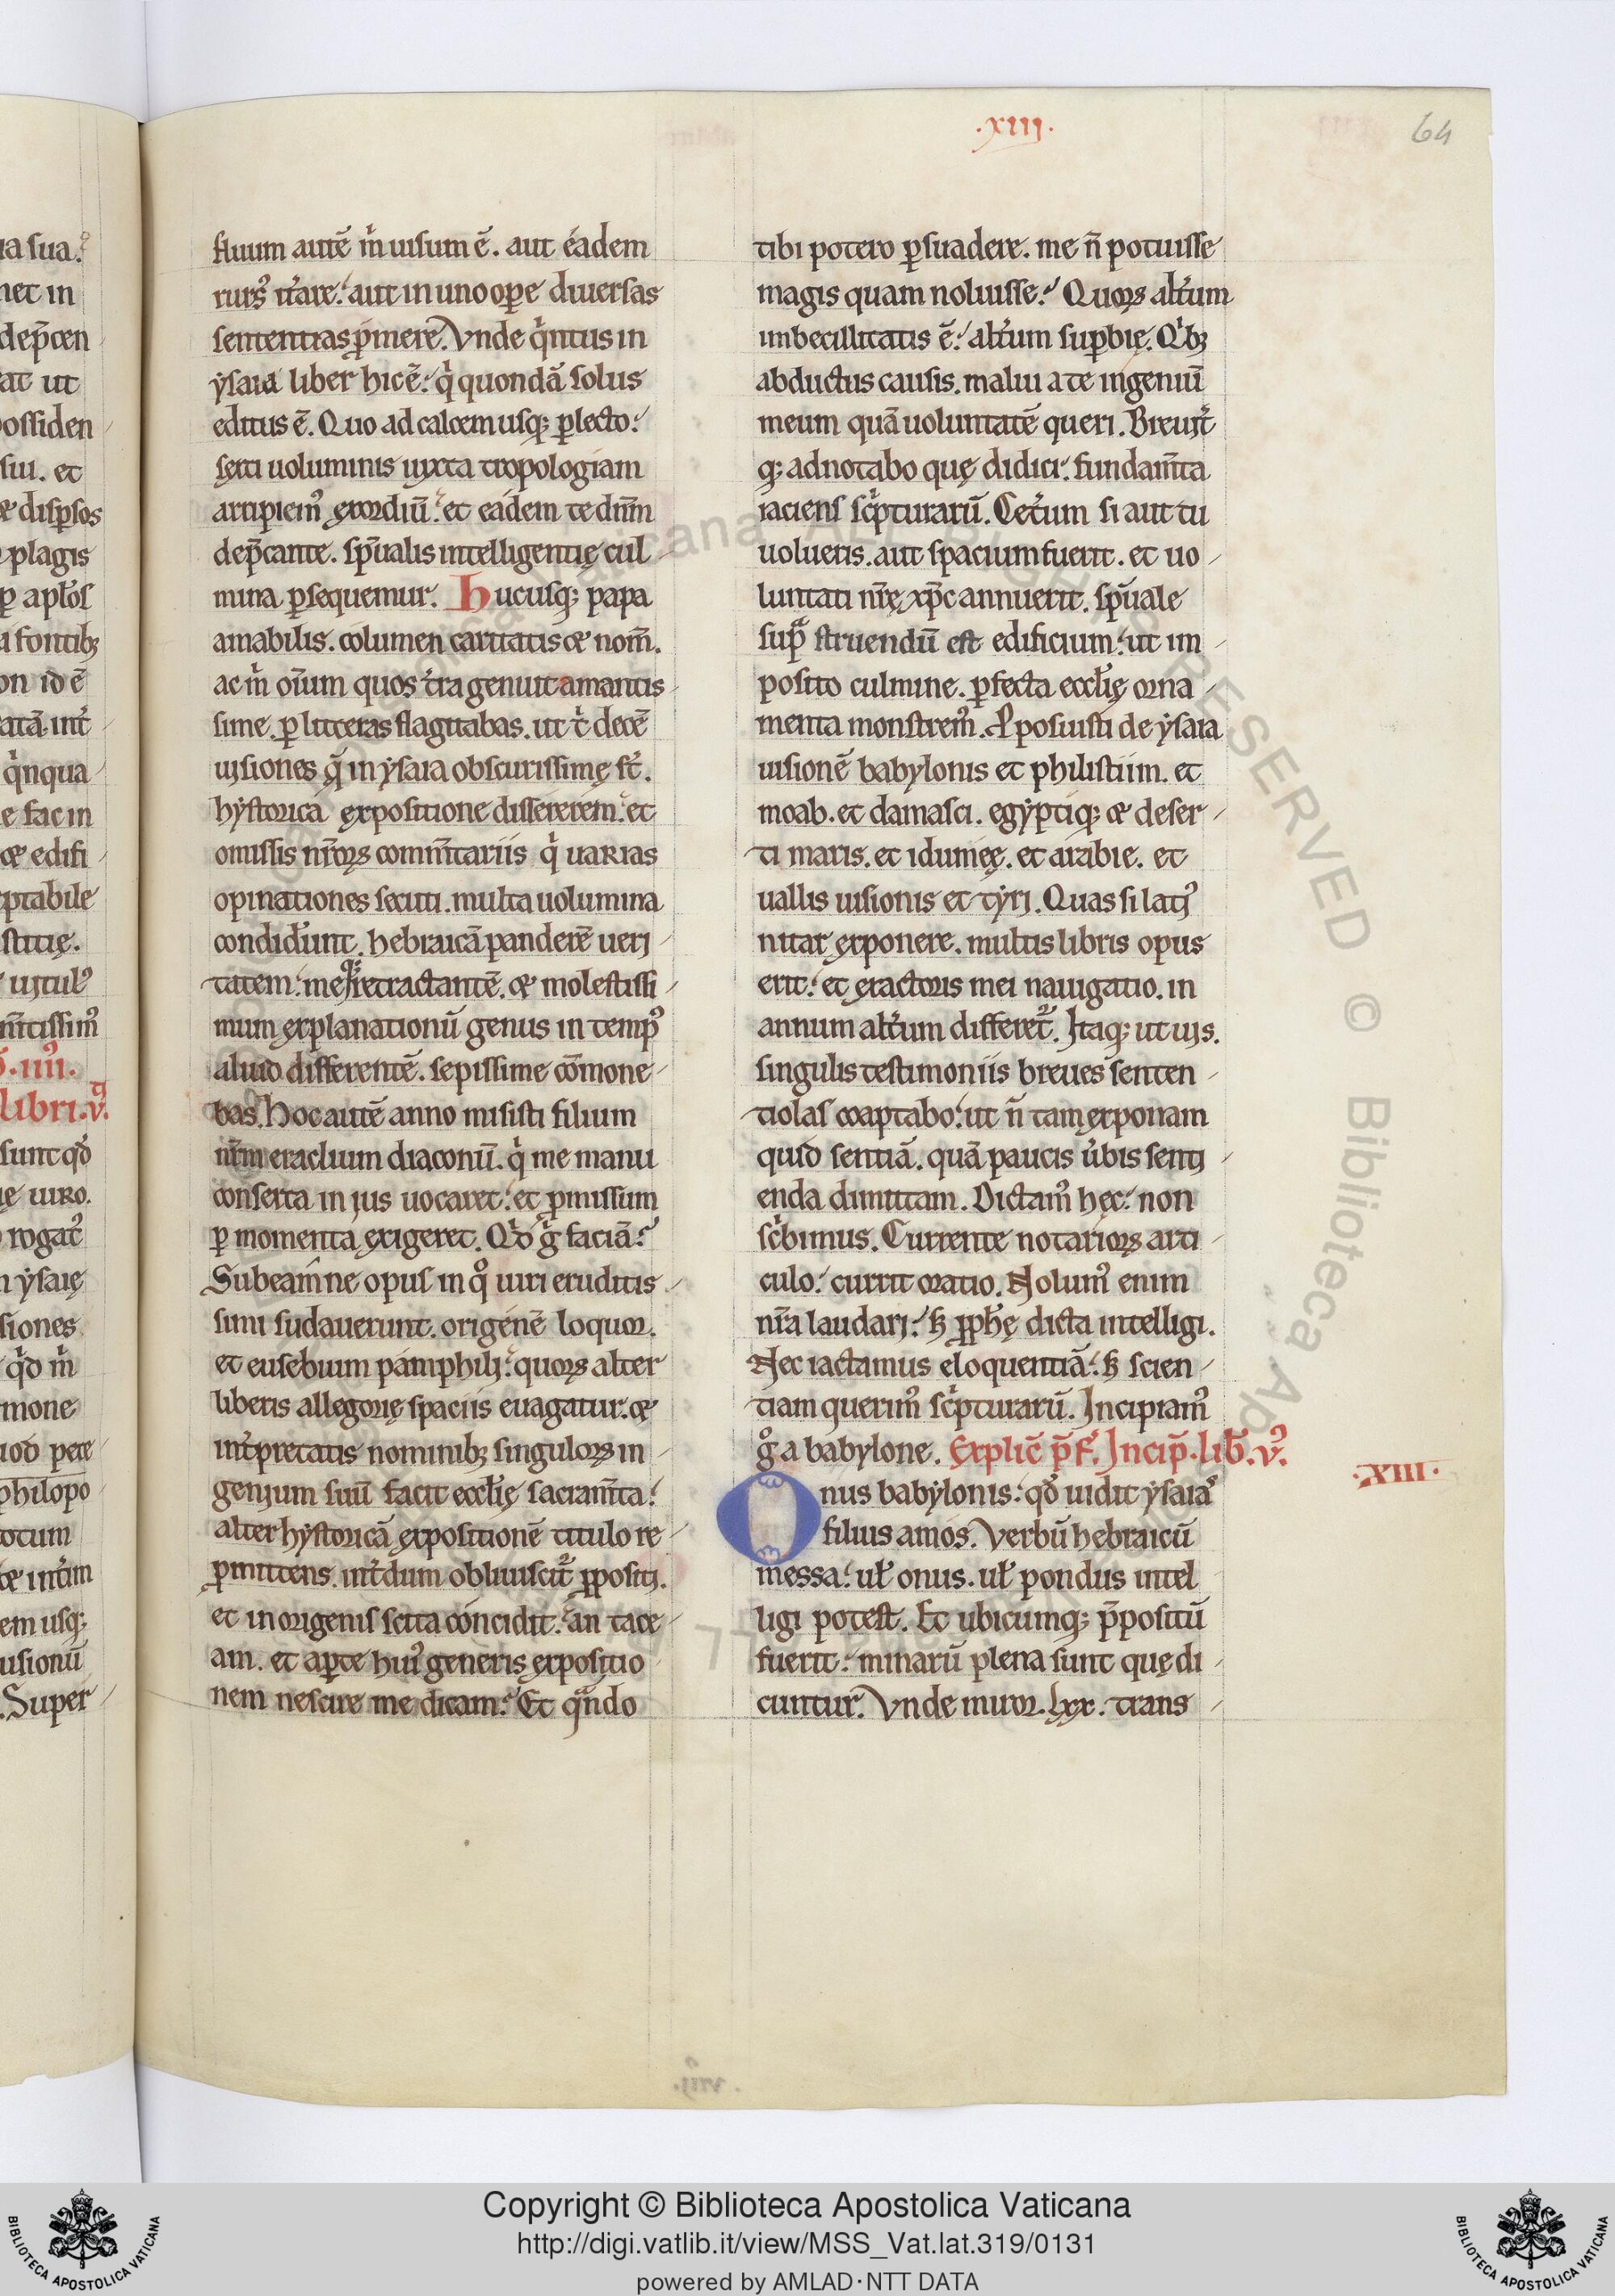 .xiij.
64
fluum autē m̉ uisum ē. aut eadem
rurs᷒ it̉are. aut in uno oꝑe diuersas
sententias p̉mere. Vnde q̉ntus in
ẏsaia liber hic ē. q̉ quondā solus
editus ē. Quo ad calcem usq; ꝑlecto.
sęxti uoluminis iuxta tropologiam
arripiem᷒ exordiū. et eadem te dn̄m
dep̄cante. sp̄ualis intelligentię cul
mina ꝑsequemur. Hucusq; papa
amabilis. columen caritatis & nom̄.
ac m̉ om̄ium quos t̉ra genuit amantis
sime. ꝑ litteras flagitabas. ut t̉ decē
uisiones q̄ in ẏsaia obscurissimę st̉.
hẏstorica expositione dissererem. et
omissis nr̄oꝝ comm̄tariis q̉ uarias
opinationes secuti. multa uolumina
condider̉unt. hebraicā panderē ueri
tatem. meq; retractantē. & molestissi
mum explanationū genus in temp᷒
aliud differentē. sepissime cōmone
bas. Hoc autē anno misisti filium
nr̄m eraclium diaconū. q̉ me manu
conserta in ius uocaret. et p̱missum
ꝑ momenta exigeret. Qd̉ g̉ faciā?
Subeamne opus in q̊ uiri eruditis
simi sudauerunt. origenē loquor.
et eusebium pamphili. quoꝝ alter
liberis allegorię spaciis euagatur. &
int̉pretatis nominibꝫ singuloꝝ in
genium suū facit ecclīę sacram̄ta.
alter hẏstoricā expositionē titulo re
p̱mittens. int̉dum obliuiscit᷒ ꝓpositi.
et in origenis scita concidit. an tace
am. et aꝑte hui᷒ generis expositio
nem nescire me dicam? Et qᷓndo
tibi potero ꝑsuadere. me ñ potuisse
magis quam noluisse? Quoꝝ alt̉um
imbecillitatis ē. alt̉um suꝑbię. Q̉bꝫ
abductus causis. malui a te ingeniū
meum quā uoluntatē queri. Breuit̉
q; adnotabo quę didici. fundam̄ta
iaciens sc̉pturarū. Cet̉um si aut tu
uolueris. aut spacium fuerit. et uo
luntati nr̄ę xp̄c annuerit. sp̄uale
supᷓ struendū est edificium. ut im
posito culmine. ꝑfecta ecclīę orna
menta monstrem᷒. Ꝓposuisti de ẏsaia
uisionē babylonis et philistiim. et
moab. et damasci. egẏptiq; & deser
ti maris. et idumęę. et arabie. et
uallis uisionis et tẏri. Quas si lati᷒
nitar exponere. multis libris opus
erit. et exactoris mei nauigatio. in
annum alt̉um differet᷒. Itaq; ut uis.
singulis testimoniis breues senten
tiolas coaptabo. ut ñ tam exponam
quid sentiā. quā paucis ůbis senti
enda dimittam. Dictam᷒ hęc. non
sc̉bimus. Currente notarioꝝ arti
culo. currit oratio. Nolum᷒ enim
nr̄a laudari. sꝫ ꝓph̄ę dicta intelligi.
Nec iactamus eloquentiā. sꝫ scien
tiam querim᷒ sc̉pturarū. Incipiam᷒
g̊ a babylone. Explic̄ p̄f̉. Incip̄. lib̄. v᷒.
.XIII.
Onus babẏlonis. qd̉ uidit ẏsaia᷒
filius amos. Verbū hebraicū
messa. ul̉ onus. ul̉ pondus intel
ligi potest. Et ubicumq; p̄positū
fuerit. minarū plena sunt quę di
cuntur. Vnde miror. lxx. trans
Copyright © Biblioteca Apostolica Vaticana
http://digi.vatlib.it/view/MSS_Vat.lat.319/0131
powered by AMLAD·NTT DATA